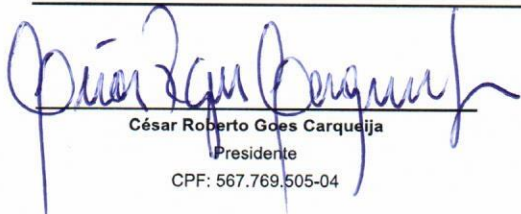 César Roberto Goes Carqueija
Presidente
CPF: 567.769.505-04